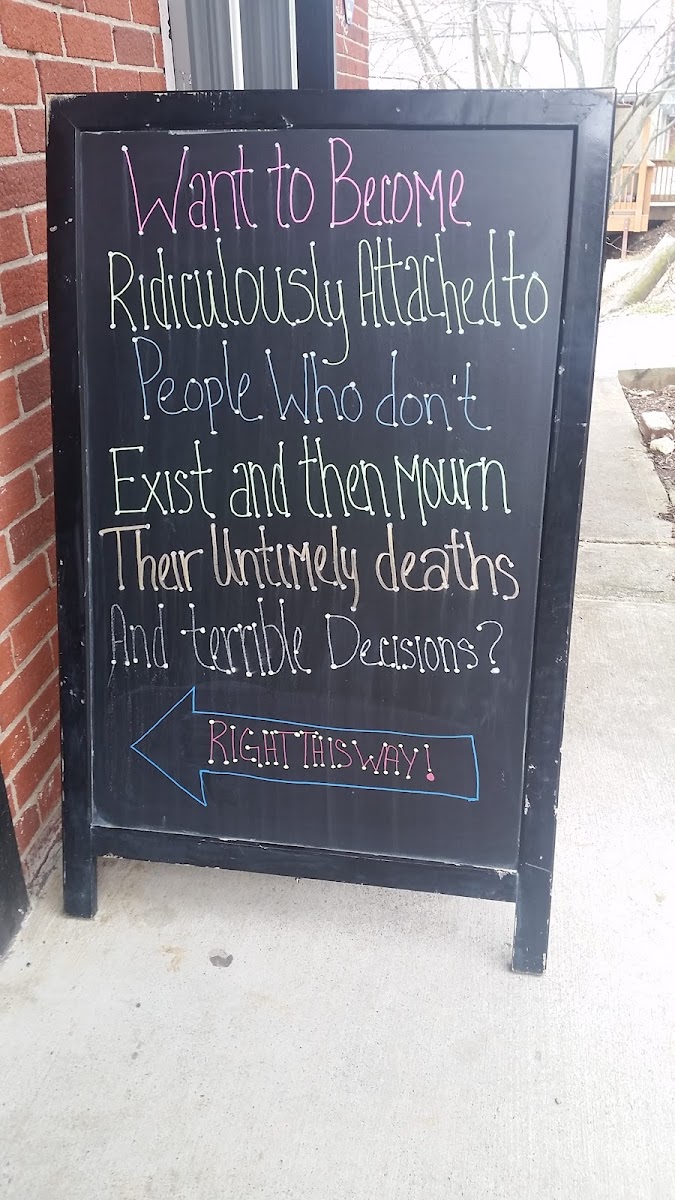 Want to Become
Ridiculously Attached to
People Who don't
Exist and then Mourn
Their Untimely deaths
And terrible Decisions?
RIGHT THIS WAY!